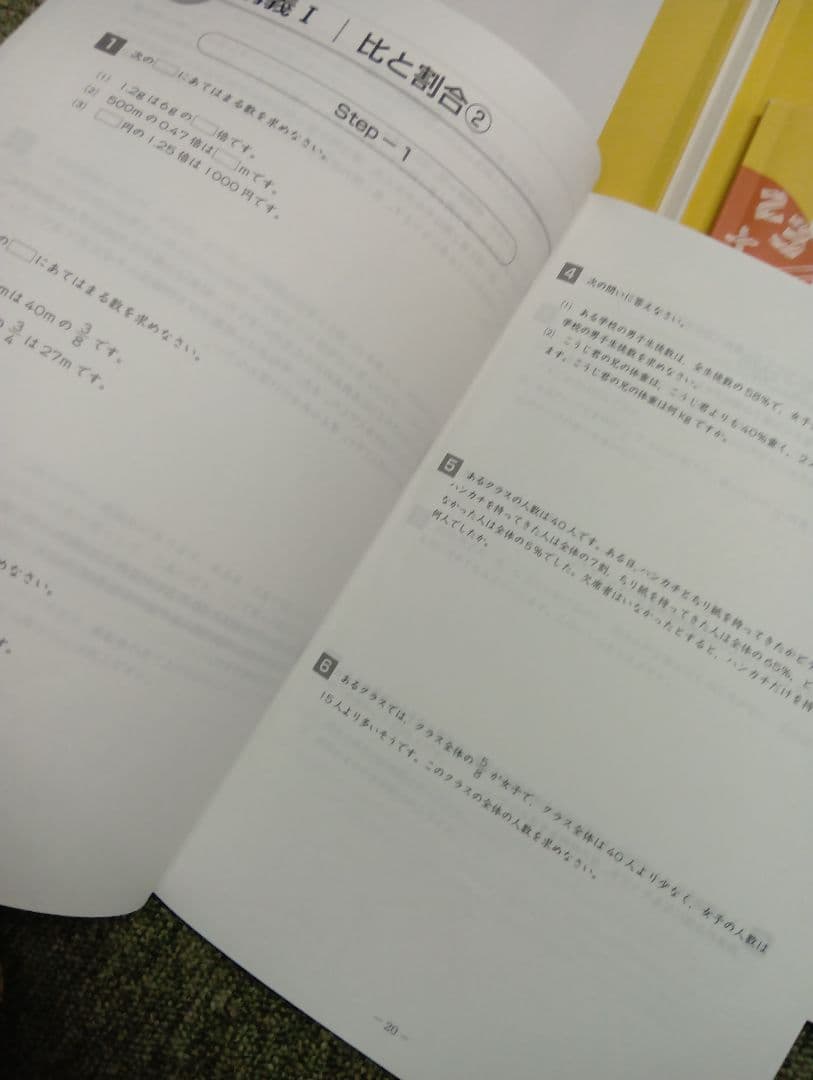 義Ⅰ｜比と割合②
Step－1
1 次の□にあてはまる数を求めなさい。
(1) 1.2gは6gの□倍です。
(2) 500mの0.47倍は□mです。
(3) □円の1.25倍は1000円です。
の□にあてはまる数を求めなさい。
mは40mの3/8です。
3/4は27mです。
めなさい。
す。
4 次の問いに答えなさい。
(1) ある学校の男子生徒数は、全生徒数の58%で、女子
学校の男子生徒数を求めなさい。
(2) こうじ君の兄の体重は、こうじ君よりも40%重く、
ます。こうじ君の兄の体重は何kgですか。
5 あるクラスの人数は40人です。ある日、ハンカチとちり紙を持ってきたかど
ハンカチを持ってきた人は全体の7割、ちり紙を持ってきた人は全体の65%、ど
なかった人は全体の5%でした。欠席者はいなかったとすると、ハンカチだけを持
何人でしたか。
6 あるクラスでは、クラス全体の5/8が女子で、クラス全体は40人より少なく、女子の人数は
15人より多いそうです。このクラスの全体の人数を求めなさい。
－20－